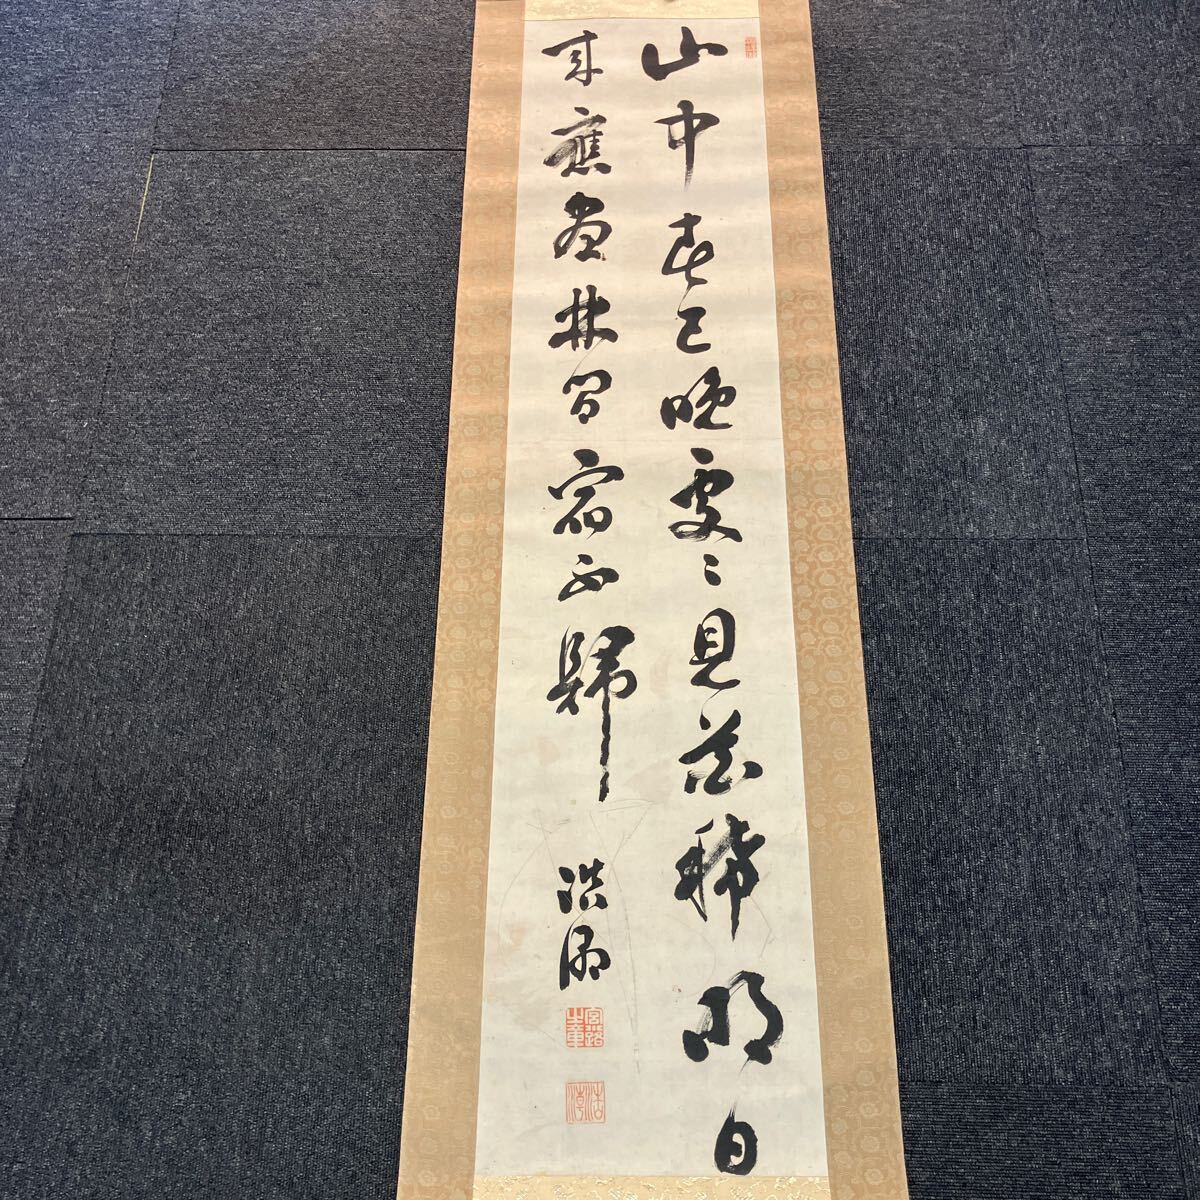 山中春已晩處〻見花稀明日
来應盡林間宿不歸
浩